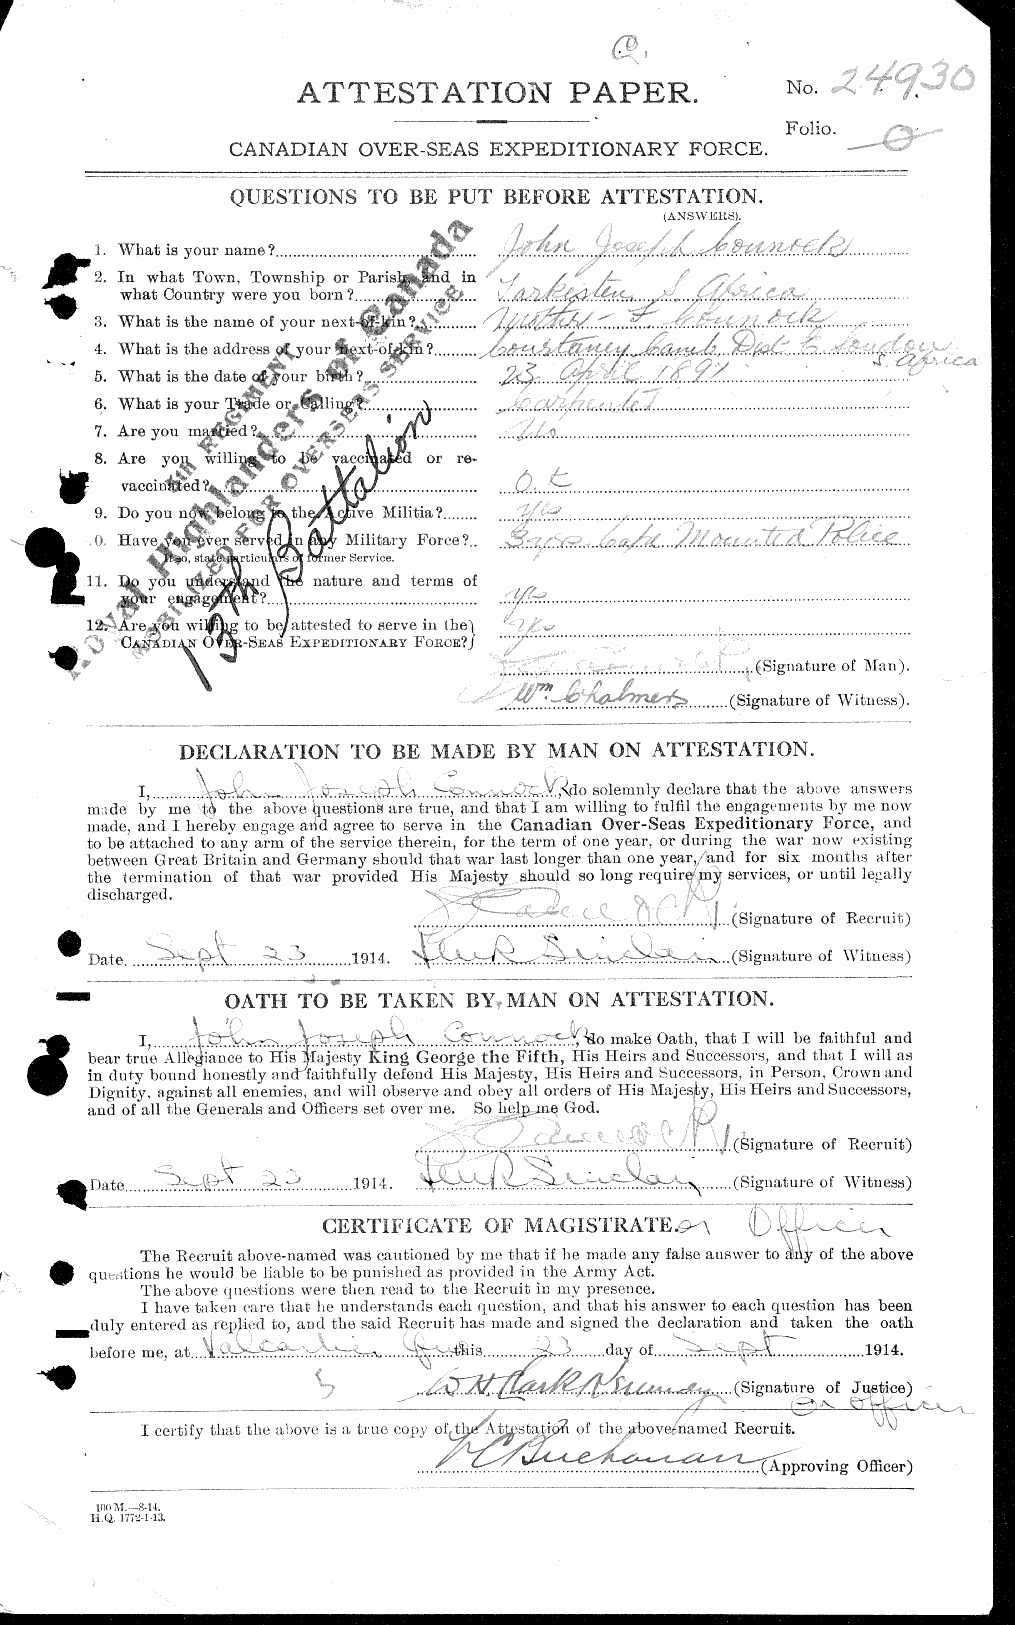 C.
ATTESTATION PAPER.
No. 24930
Folio. 0
CANADIAN OVER-SEAS EXPEDITIONARY FORCE.
QUESTIONS TO BE PUT BEFORE ATTESTATION.
(ANSWERS).
1. What is your name? John Joseph Connock
2. In what Town, Township or Parish, and in
what Country were you born? Tarkisten S Africa
3. What is the name of your next-of-kin? Mother - F Connock
4. What is the address of your next-of-kin? Camb Dist E London
S. Africa
5. What is the date of your birth? 23 April 1891
6. What is your Trade or Calling? Carpenter
7. Are you married? No
8. Are you willing to be vaccinated or re-
vaccinated? O.K
9. Do you now belong to the Active Militia? yes
0. Have you ever served in any Military Force? 3 yrs. Cape Mounted Police
If so, state particulars of former Service.
11. Do you understand the nature and terms of
your engagement? yes
12. Are you willing to be attested to serve in the
CANADIAN OVER-SEAS EXPEDITIONARY FORCE? yes
5th REGIMENT
Royal Highlanders of Canada
MOBILIZED FOR OVERSEAS SERVICE
13th Battalion
(Signature of Man).
Wm Chalmers (Signature of Witness).
DECLARATION TO BE MADE BY MAN ON ATTESTATION.
I, John Joseph Connock, do solemnly declare that the above answers
made by me to the above questions are true, and that I am willing to fulfil the engagements by me now
made, and I hereby engage and agree to serve in the Canadian Over-Seas Expeditionary Force, and
to be attached to any arm of the service therein, for the term of one year, or during the war now existing
between Great Britain and Germany should that war last longer than one year, and for six months after
the termination of that war provided His Majesty should so long require my services, or until legally
discharged.
J Connock (Signature of Recruit)
Date. Sept 23 1914. Sinclair (Signature of Witness)
OATH TO BE TAKEN BY MAN ON ATTESTATION.
I, John Joseph Connock, do make Oath, that I will be faithful and
bear true Allegiance to His Majesty King George the Fifth, His Heirs and Successors, and that I will as
in duty bound honestly and faithfully defend His Majesty, His Heirs and Successors, in Person, Crown and
Dignity, against all enemies, and will observe and obey all orders of His Majesty, His Heirs and Successors,
and of all the Generals and Officers set over me. So help me God.
J Connock (Signature of Recruit)
Date Sept 23 1914. Sinclair (Signature of Witness)
CERTIFICATE OF MAGISTRATE. or Officer
The Recruit above-named was cautioned by me that if he made any false answer to any of the above
questions he would be liable to be punished as provided in the Army Act.
The above questions were then read to the Recruit in my presence.
I have taken care that he understands each question, and that his answer to each question has been
duly entered as replied to, and the said Recruit has made and signed the declaration and taken the oath
before me, at Valcartier Que this 23 day of Sept 1914.
W H Clark Kennedy (Signature of Justice)
or officer
I certify that the above is a true copy of the Attestation of the above-named Recruit.
Buchanan (Approving Officer)
100 M.—8-14.
H.Q. 1772-1-13.